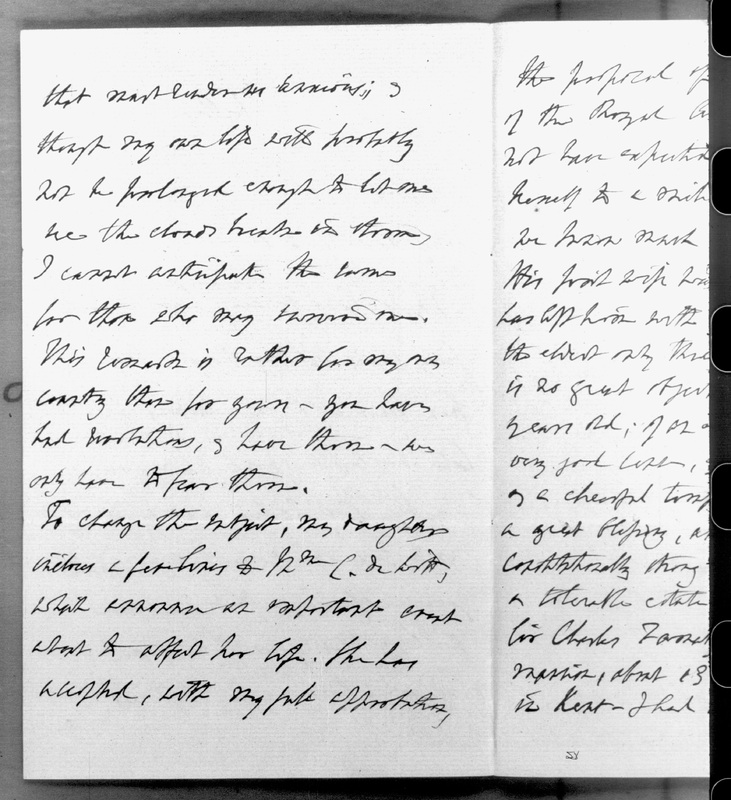 that must render me anxious; &
though my own life will probably
not be prolonged enough to let me
see the clouds break in storm,
I cannot anticipate the same
for those who may survive me.
This remark is rather for my own
country than for yours - you have
had revolutions, & have them - we
only have to fear them.
To change the subject, my daughter
incloses a few lines to Mme C. de Witt,
which announce an important event
about to affect her life. She has
accepted, with my full approbation,
the proposal of
of the Royal
not have expected
himself to a
we know much
His first wife
has left him with
the eldest only
is no great object
years old; of
very good
of a cheerful
a great blessing,
constitutionally strong
a tolerable estate
Sir Charles
mansion, about 23
in Kent - I had